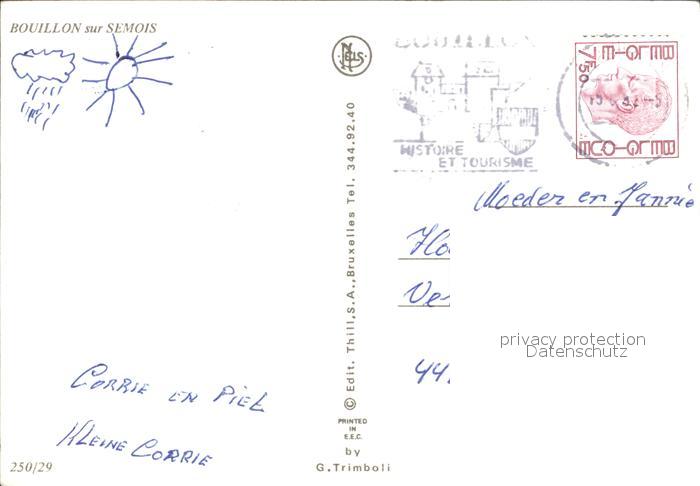 BOUILLON sur SEMOIS
NELS
BOUILLON
HISTOIRE
ET TOURISME
BELGIE
750
BELGIQUE
Moeder en Jannie
Ho
Ve
44.
privacy protection
Datenschutz
CORRIE EN PIET
KLEINE CORRIE
250/29
© Edit. Thill, S.A., Bruxelles Tel. 344.92.40
PRINTED
IN
E.E.C.
by
G. Trimboli